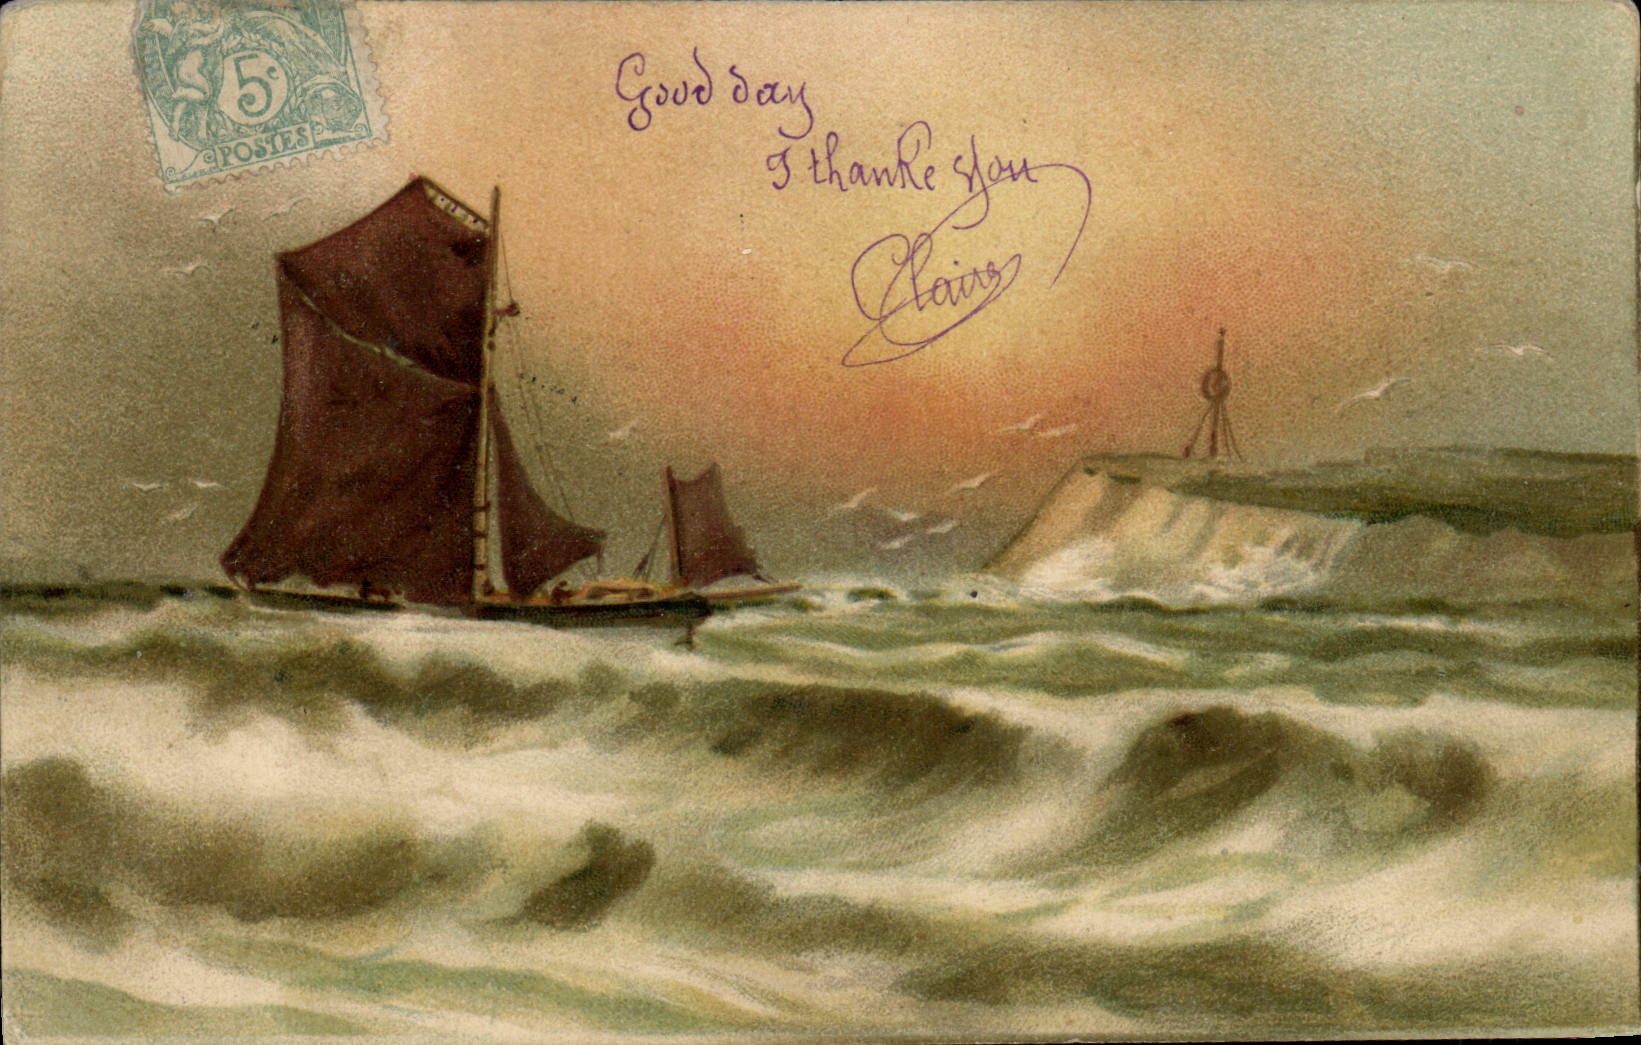 5c
POSTES
Good day
I thanke you
Claire